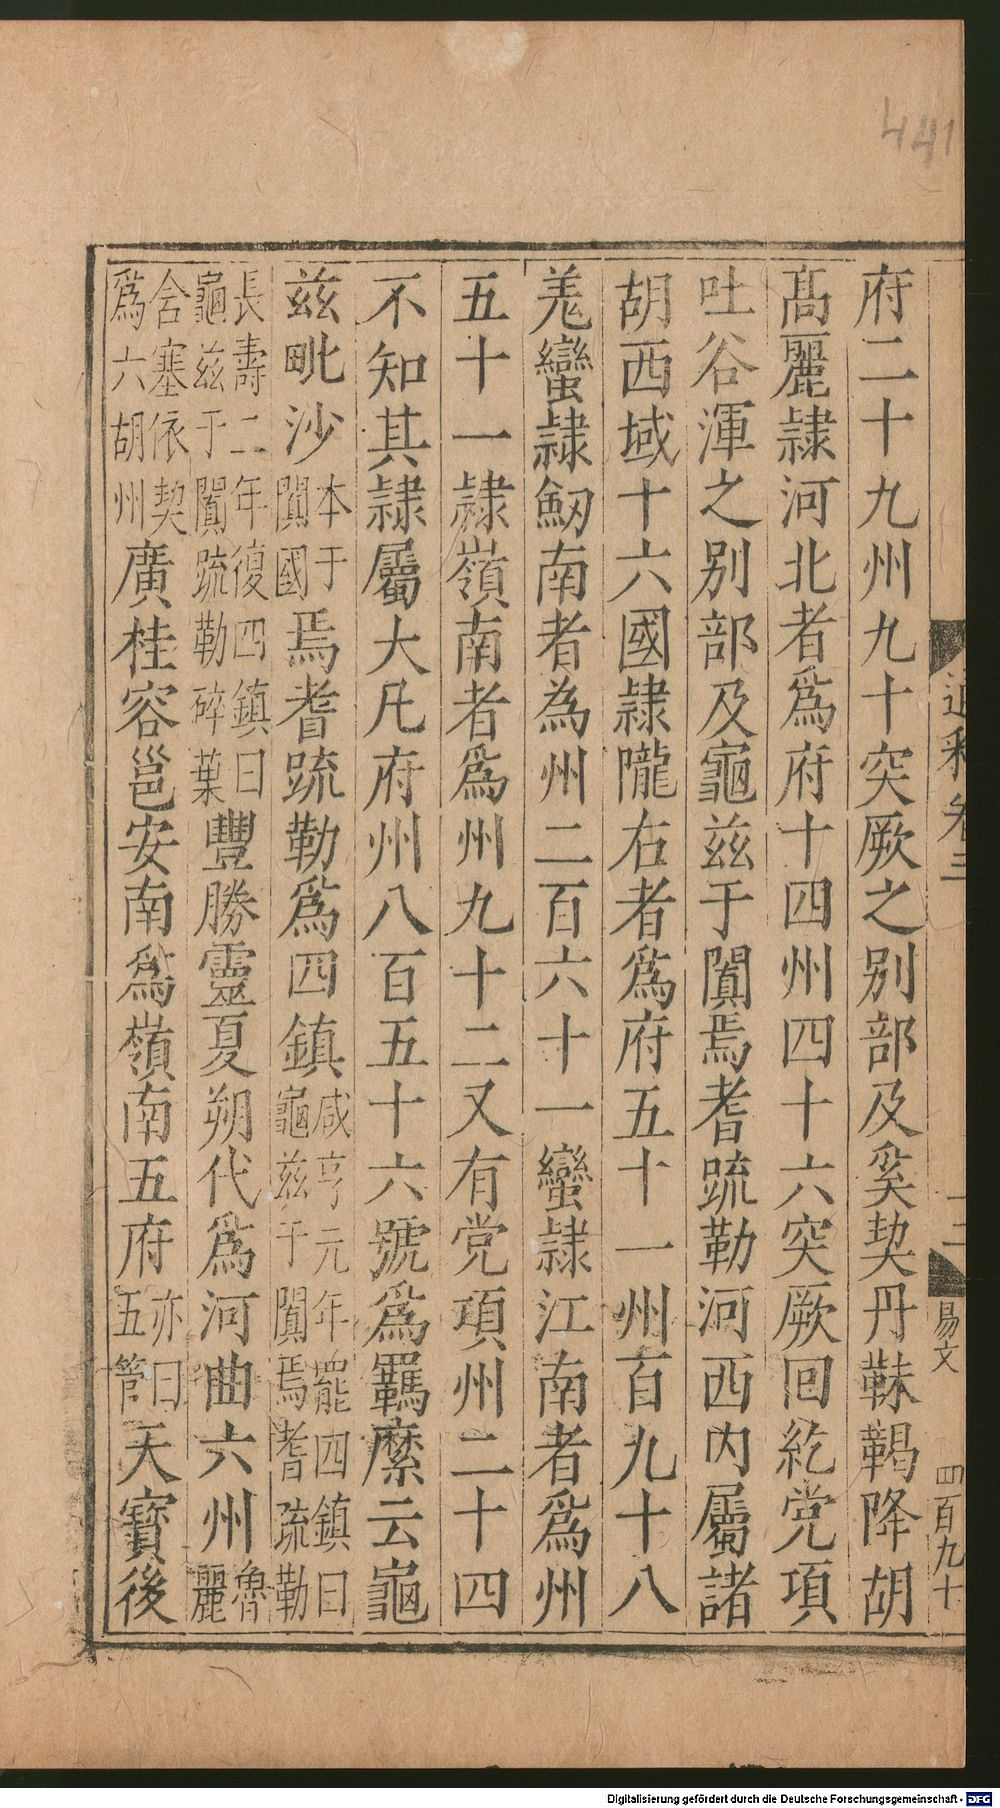 441
府二十九州九十突厥之别部及奚契丹靺鞨降胡
髙麗隷河北者爲府十四州四十六突厥回紇党項
吐谷渾之别部及龜兹于闐焉耆䟽勒河西内屬諸
胡西域十六國隷隴右者爲府五十一州百九十八
羗蠻隷劒南者為州二百六十一蠻隷江南者爲州
五十一隷嶺南者爲州九十二又有党項州二十四
不知其隷屬大凡府州八百五十六號爲羈縻云龜
兹毗沙本于闐國焉耆䟽勒爲四鎮咸亨元年罷四鎮曰龜兹于闐焉耆䟽勒
長壽二年復四鎮曰龜兹于闐䟽勒碎葉豐勝靈夏朔代爲河曲六州魯麗
含塞依契爲六胡州廣桂容邕安南爲嶺南五府亦曰五管天寳後
通釋卷三
十二
易文
四百九十
Digitalisierung gefördert durch die Deutsche Forschungsgemeinschaft - DFG